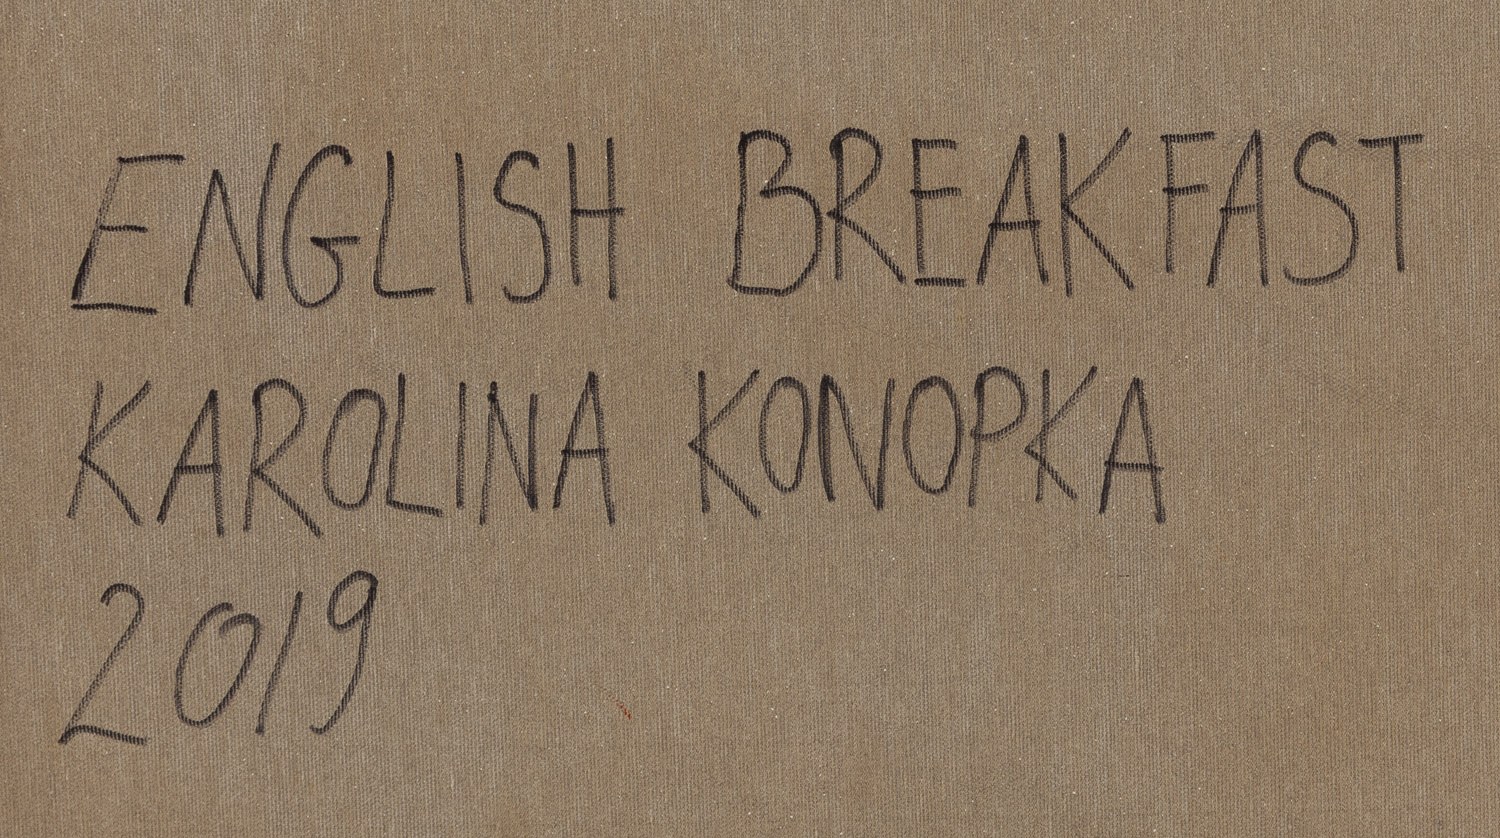 ENGLISH BREAKFAST
KAROLINA KONOPKA
2019